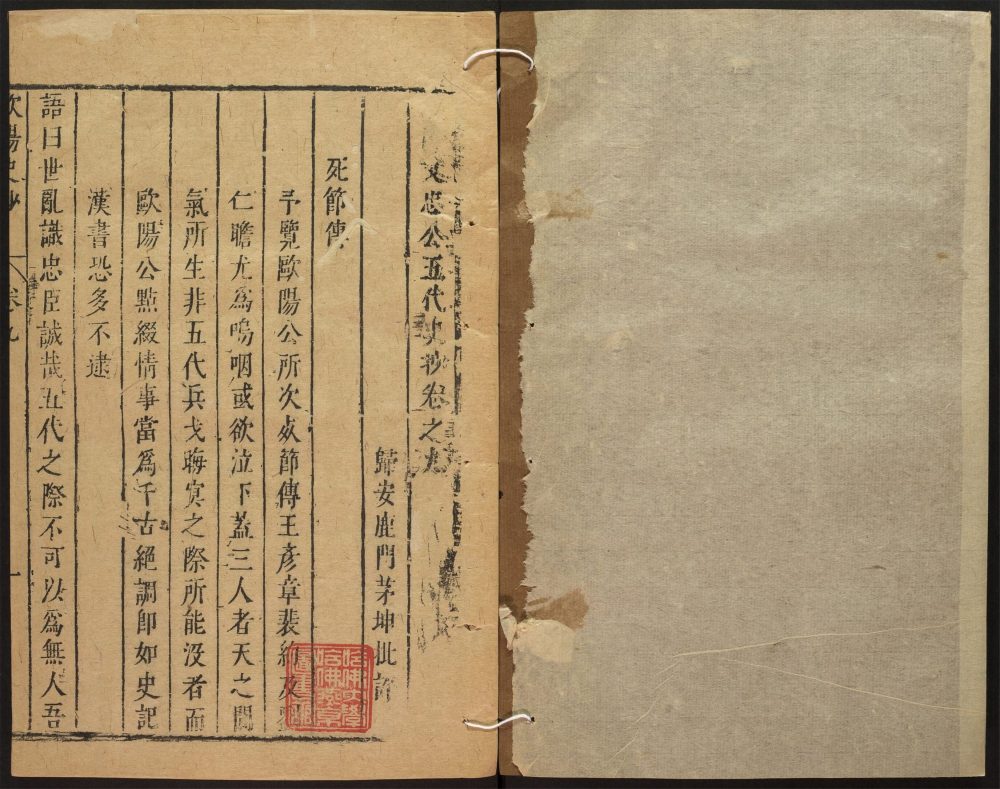 文忠公五代史抄卷之九
歸安鹿門茅坤批評
死節傳
予覽歐陽公所次死節傳王彥章裴約及劉
仁贍尤爲嗚咽或欲泣下蓋三人者天之間
氣所生非五代兵戈晦冥之際所能沒者而
歐陽公點綴情事當爲千古絕調卽如史記
漢書恐多不逮
語曰世亂識忠臣誠哉五代之際不可以爲無人吾
歐陽史抄 卷九 一
哈佛大學哈佛燕京圖書館